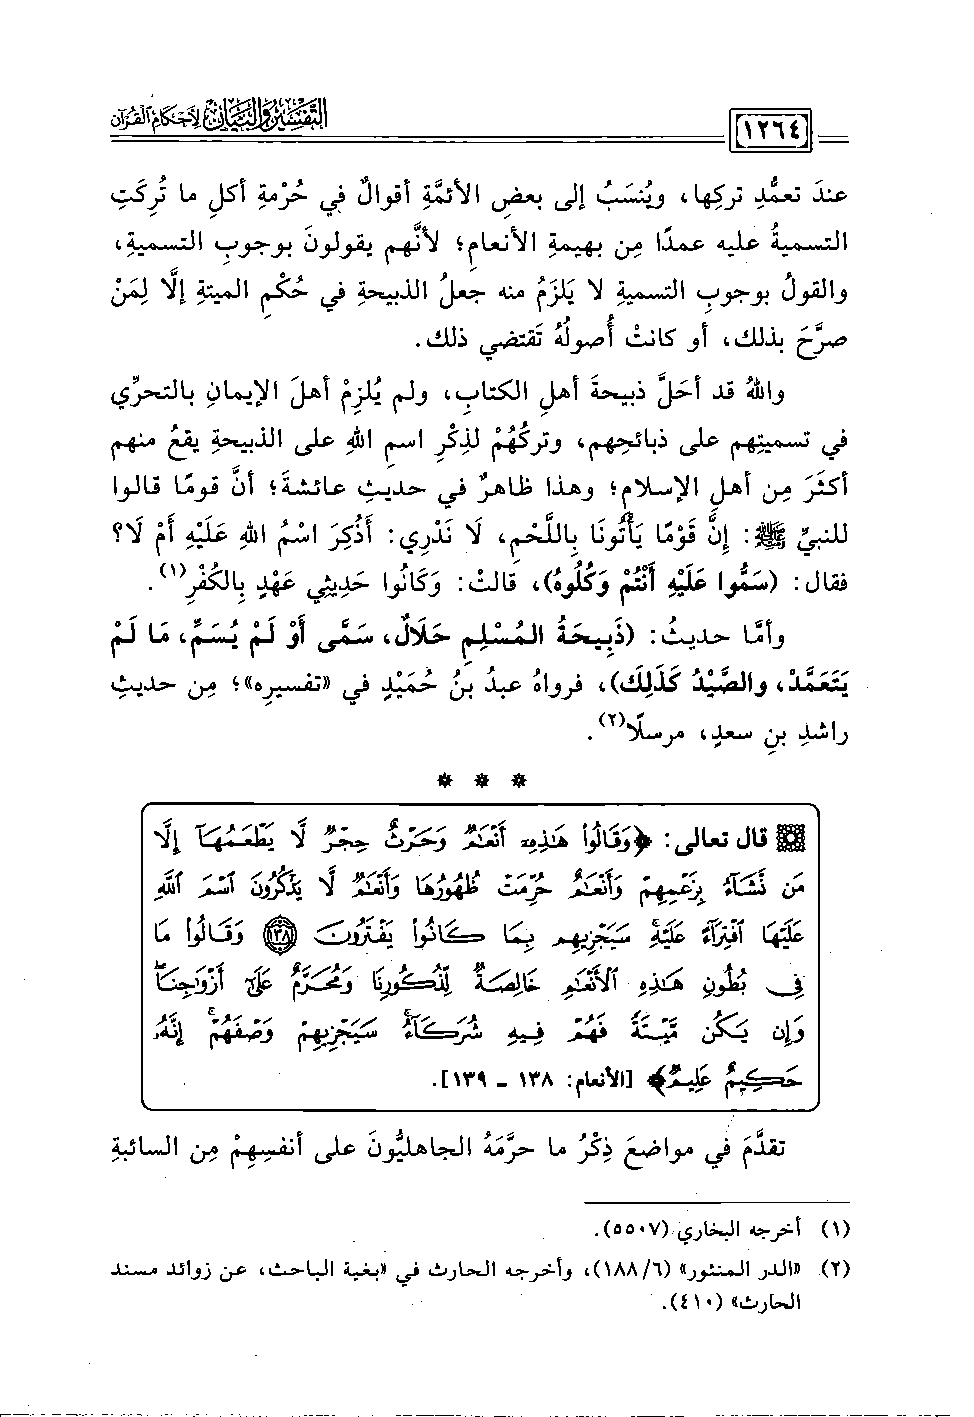 التفسير والبيان لأحكام القرآن
١٢٦٤
عندَ تعمُّدِ تركِها، ويُنسَبُ إلى بعضِ الأئمَّةِ أقوالٌ في حُرْمةِ أكلِ ما تُرِكَتِ
التسميةُ عليه عمدًا مِن بهيمةِ الأنعامِ؛ لأنَّهم يقولونَ بوجوبِ التسميةِ،
والقولُ بوجوبِ التسميةِ لا يَلزَمُ منه جعلُ الذبيحةِ في حُكْمِ الميتةِ إلَّا لِمَنْ
صرَّحَ بذلك، أو كانتْ أُصولُهُ تَقتضي ذلك.
واللهُ قد أحَلَّ ذبيحةَ أهلِ الكتابِ، ولم يُلزِمْ أهلَ الإيمانِ بالتحرِّي
في تسميتِهم على ذبائحِهم، وتركُهُمْ لذِكْرِ اسمِ اللهِ على الذبيحةِ يقعُ منهم
أكثَرَ مِن أهلِ الإسلامِ؛ وهذا ظاهرٌ في حديثِ عائشةَ؛ أنَّ قومًا قالوا
للنبيِّ ﷺ: إِنَّ قَوْمًا يَأْتُونَا بِاللَّحْمِ، لَا نَدْرِي: أَذُكِرَ اسْمُ اللهِ عَلَيْهِ أَمْ لَا؟
فقال: (سَمُّوا عَلَيْهِ أَنْتُمْ وَكُلُوهُ)، قالتْ: وَكَانُوا حَدِيثِي عَهْدٍ بِالكُفْرِ(١).
وأمَّا حديثُ: (ذَبِيحَةُ المُسْلِمِ حَلَالٌ، سَمَّى أَوْ لَمْ يُسَمِّ، مَا لَمْ
يَتَعَمَّدْ، والصَّيْدُ كَذَلِكَ)، فرواهُ عبدُ بنُ حُمَيْدٍ في «تفسيرِه»؛ مِن حديثِ
راشدِ بنِ سعدٍ، مرسلًا(٢).
* * *
قال تعالى: ﴿وَقَالُوا۟ هَـٰذِهِۦٓ أَنْعَـٰمٌ وَحَرْثٌ حِجْرٌ لَّا يَطْعَمُهَآ إِلَّا
مَن نَّشَآءُ بِزَعْمِهِمْ وَأَنْعَـٰمٌ حُرِّمَتْ ظُهُورُهَا وَأَنْعَـٰمٌ لَّا يَذْكُرُونَ ٱسْمَ ٱللَّهِ
عَلَيْهَا ٱفْتِرَآءً عَلَيْهِ ۚ سَيَجْزِيهِم بِمَا كَانُوا۟ يَفْتَرُونَ ١٣٨ وَقَالُوا۟ مَا
فِى بُطُونِ هَـٰذِهِ ٱلْأَنْعَـٰمِ خَالِصَةٌ لِّذُكُورِنَا وَمُحَرَّمٌ عَلَىٰٓ أَزْوَٰجِنَا ۖ
وَإِن يَكُن مَّيْتَةً فَهُمْ فِيهِ شُرَكَآءُ ۚ سَيَجْزِيهِمْ وَصْفَهُمْ ۚ إِنَّهُۥ
حَكِيمٌ عَلِيمٌ﴾ [الأنعام: ١٣٨ ـ ١٣٩].
تقدَّمَ في مواضعَ ذِكْرُ ما حرَّمَهُ الجاهليُّونَ على أنفسِهِمْ مِن السائبةِ
(١) أخرجه البخاري (٥٥٠٧).
(٢) «الدر المنثور» (٦/ ١٨٨)، وأخرجه الحارث في «بغية الباحث، عن زوائد مسند
الحارث» (٤١٠).